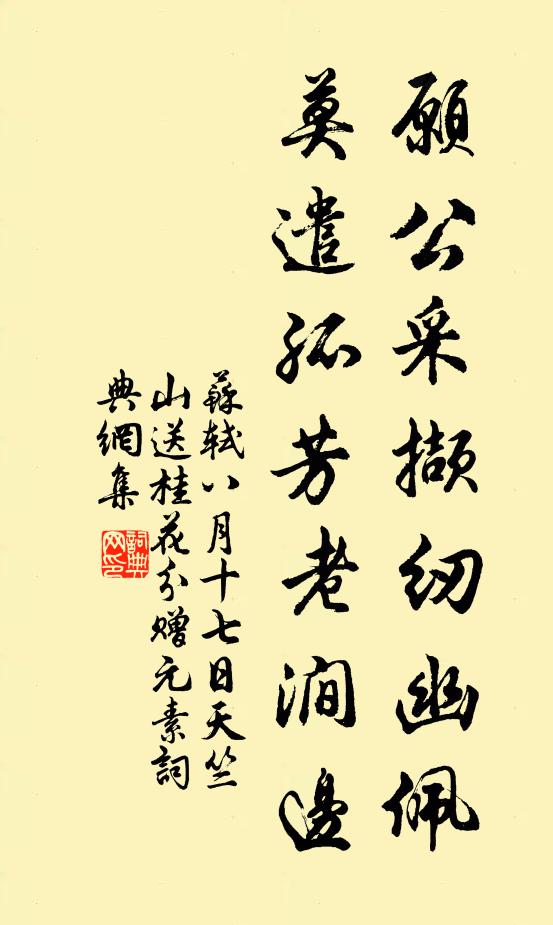 願公采擷紉幽佩
莫遣孤芳老澗邊
蘇軾八月十七日天竺
山送桂花分赠元素詞
典網集
詞典
网印